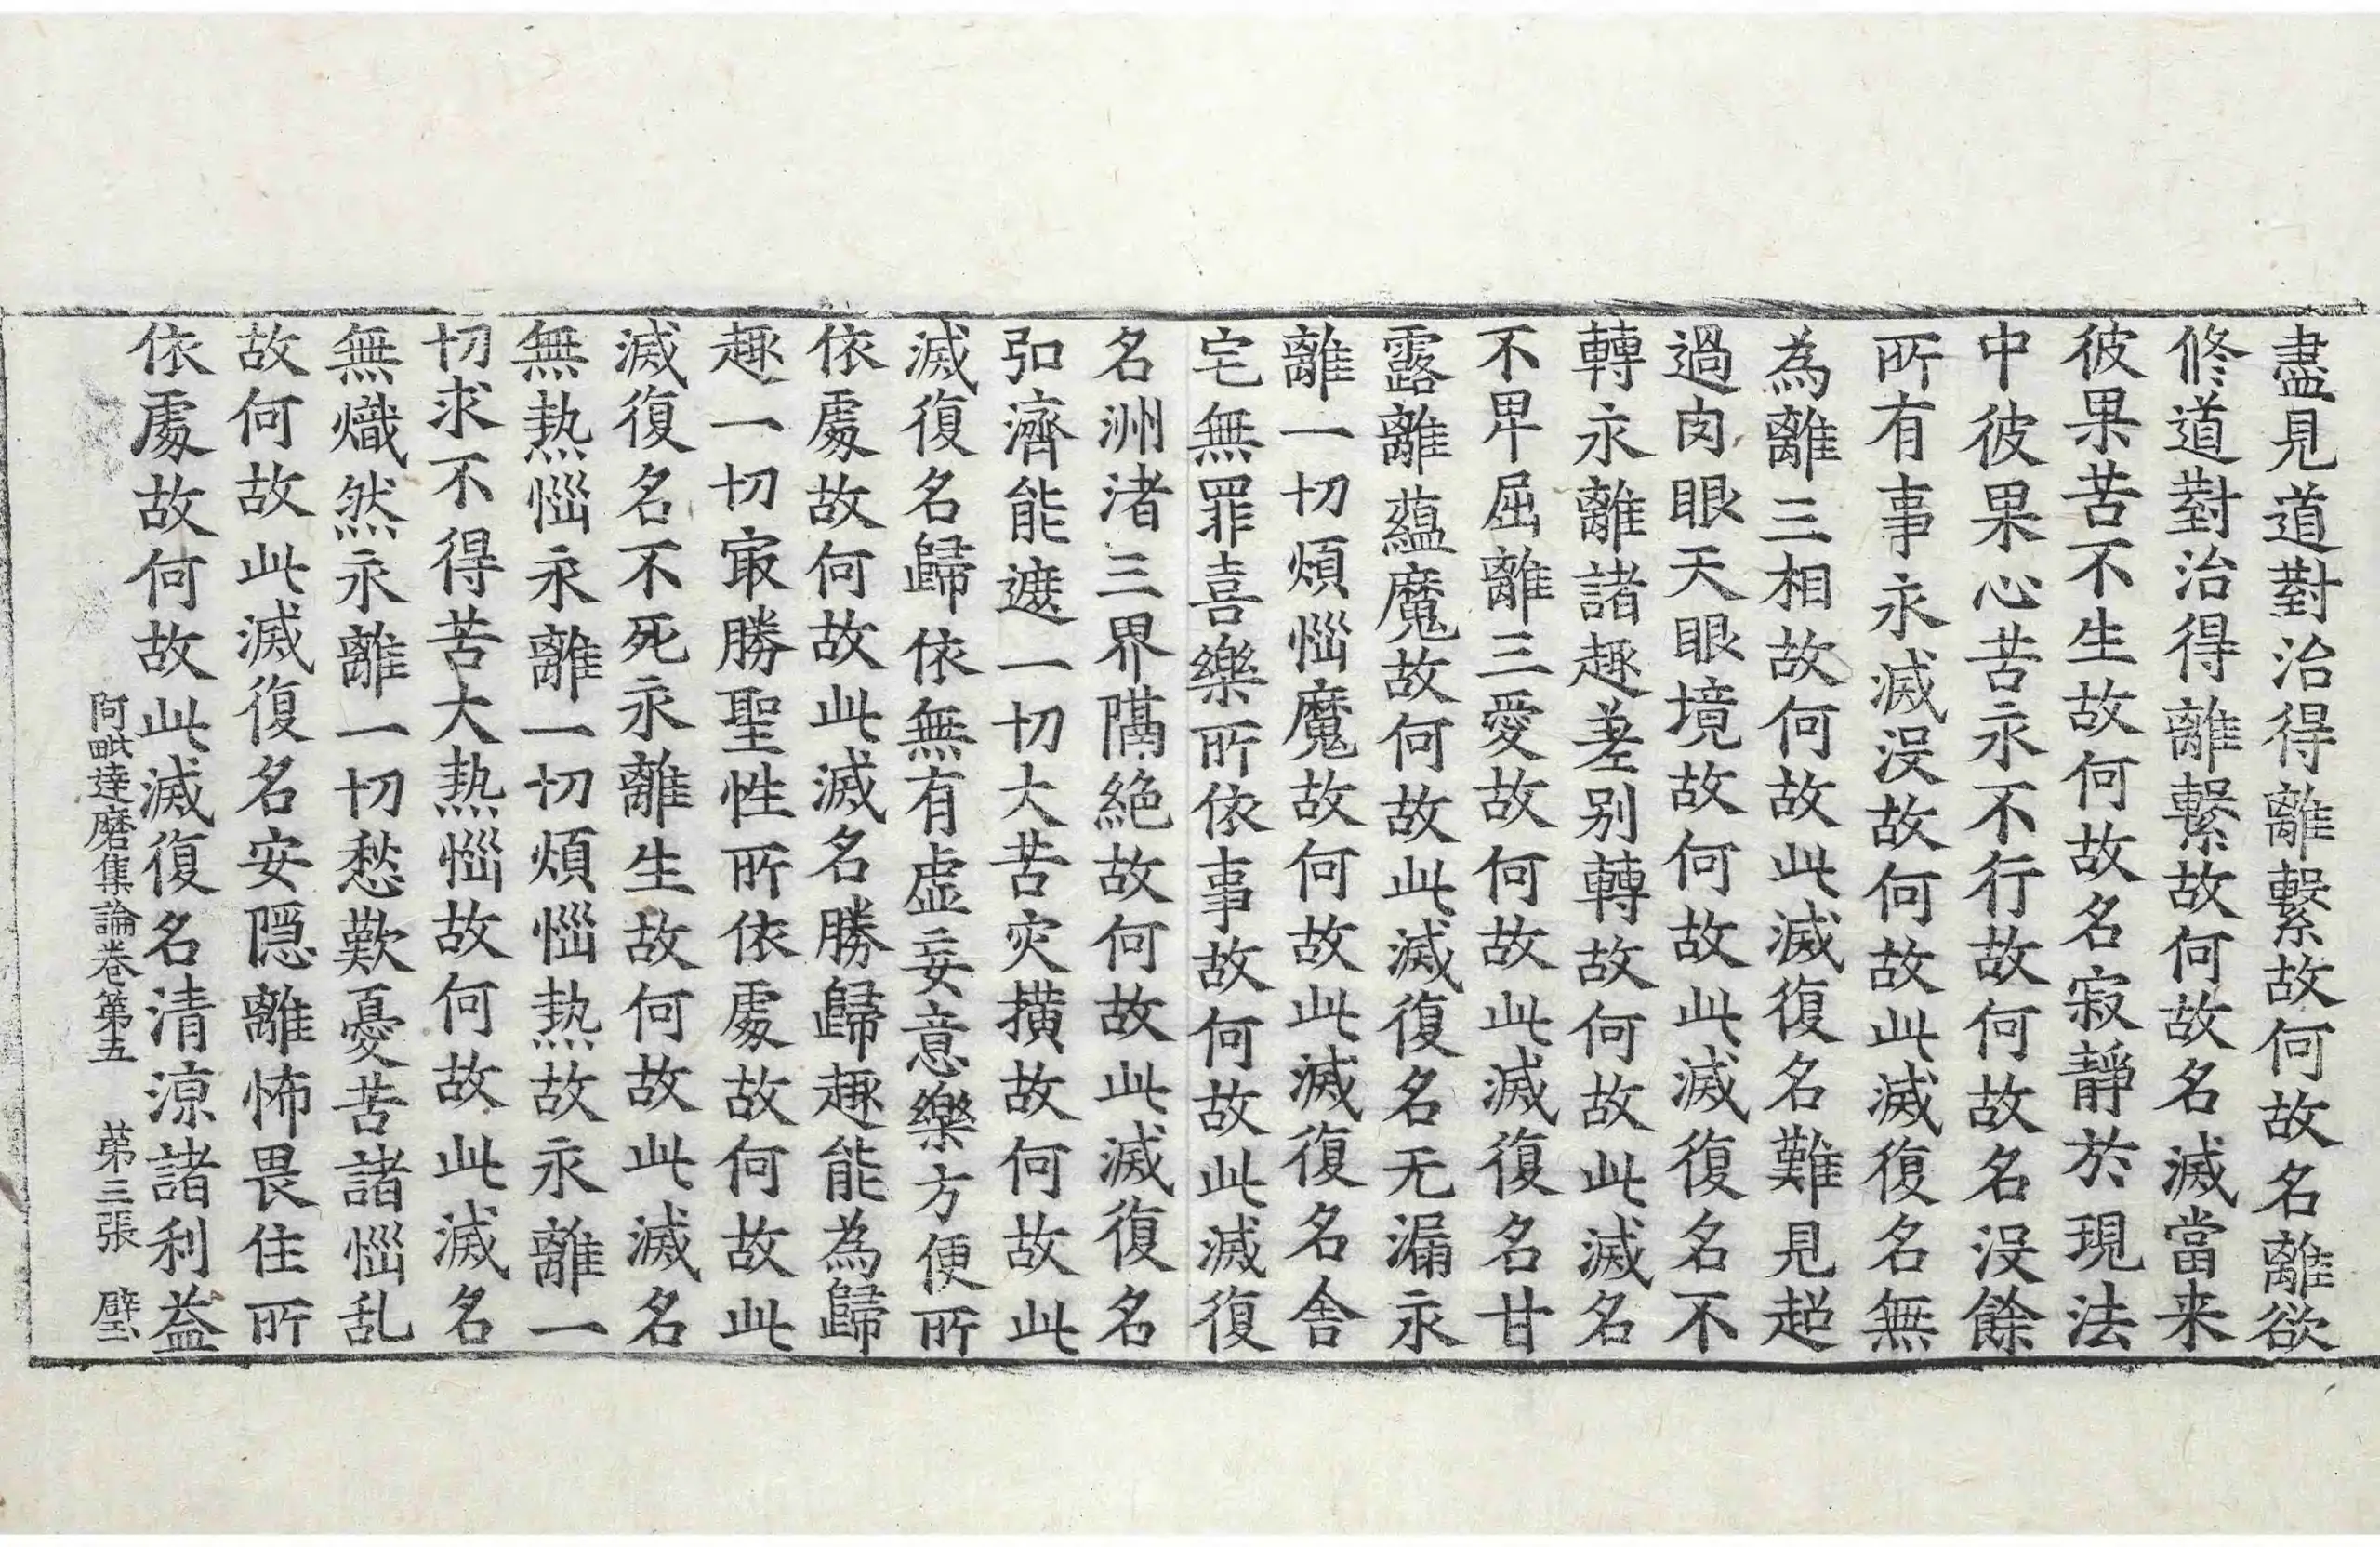 盡見道對治得離繫故何故名離欲
修道對治得離繫故何故名滅當来
彼果苦不生故何故名寂靜於現法
中彼果心苦永不行故何故名沒餘
所有事永滅沒故何故此滅復名無
為離三相故何故此滅復名難見超
過肉眼天眼境故何故此滅復名不
轉永離諸趣差别轉故何故此滅名
不卑屈離三愛故何故此滅復名甘
露離蘊魔故何故此滅復名无漏永
離一切煩惱魔故何故此滅復名舍
宅無罪喜樂所依事故何故此滅復
名洲渚三界隔絶故何故此滅復名
弘濟能遮一切大苦灾撗故何故此
滅復名歸依無有虛妄意樂方便所
依處故何故此滅名勝歸趣能為歸
趣一切㝡勝聖性所依處故何故此
滅復名不死永離生故何故此滅名
無热惱永離一切煩惱热故永離一
切求不得苦大热惱故何故此滅名
無熾然永離一切愁歎憂苦諸惱乱
故何故此滅復名安隱離怖畏住所
依處故何故此滅復名清涼諸利益
阿毗達磨集論卷第五 第三張 壁